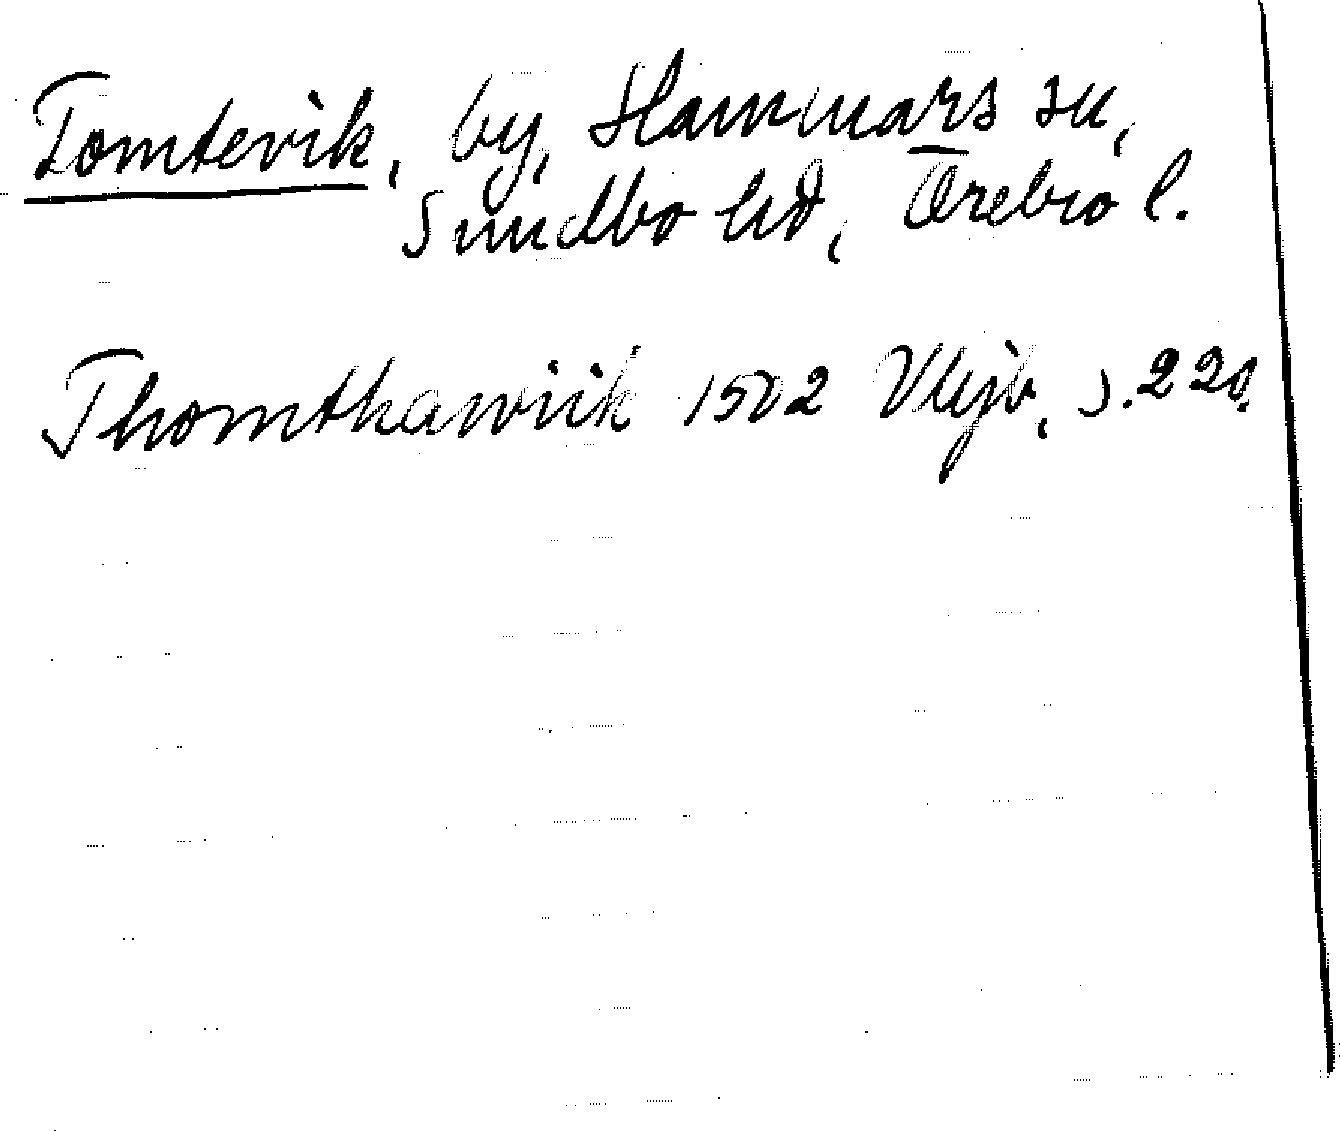 Tomtevik, by, Hammars sn,
Sundbo hd, Örebro l.
Thomthawiik 1502 Vkjb, s. 220.